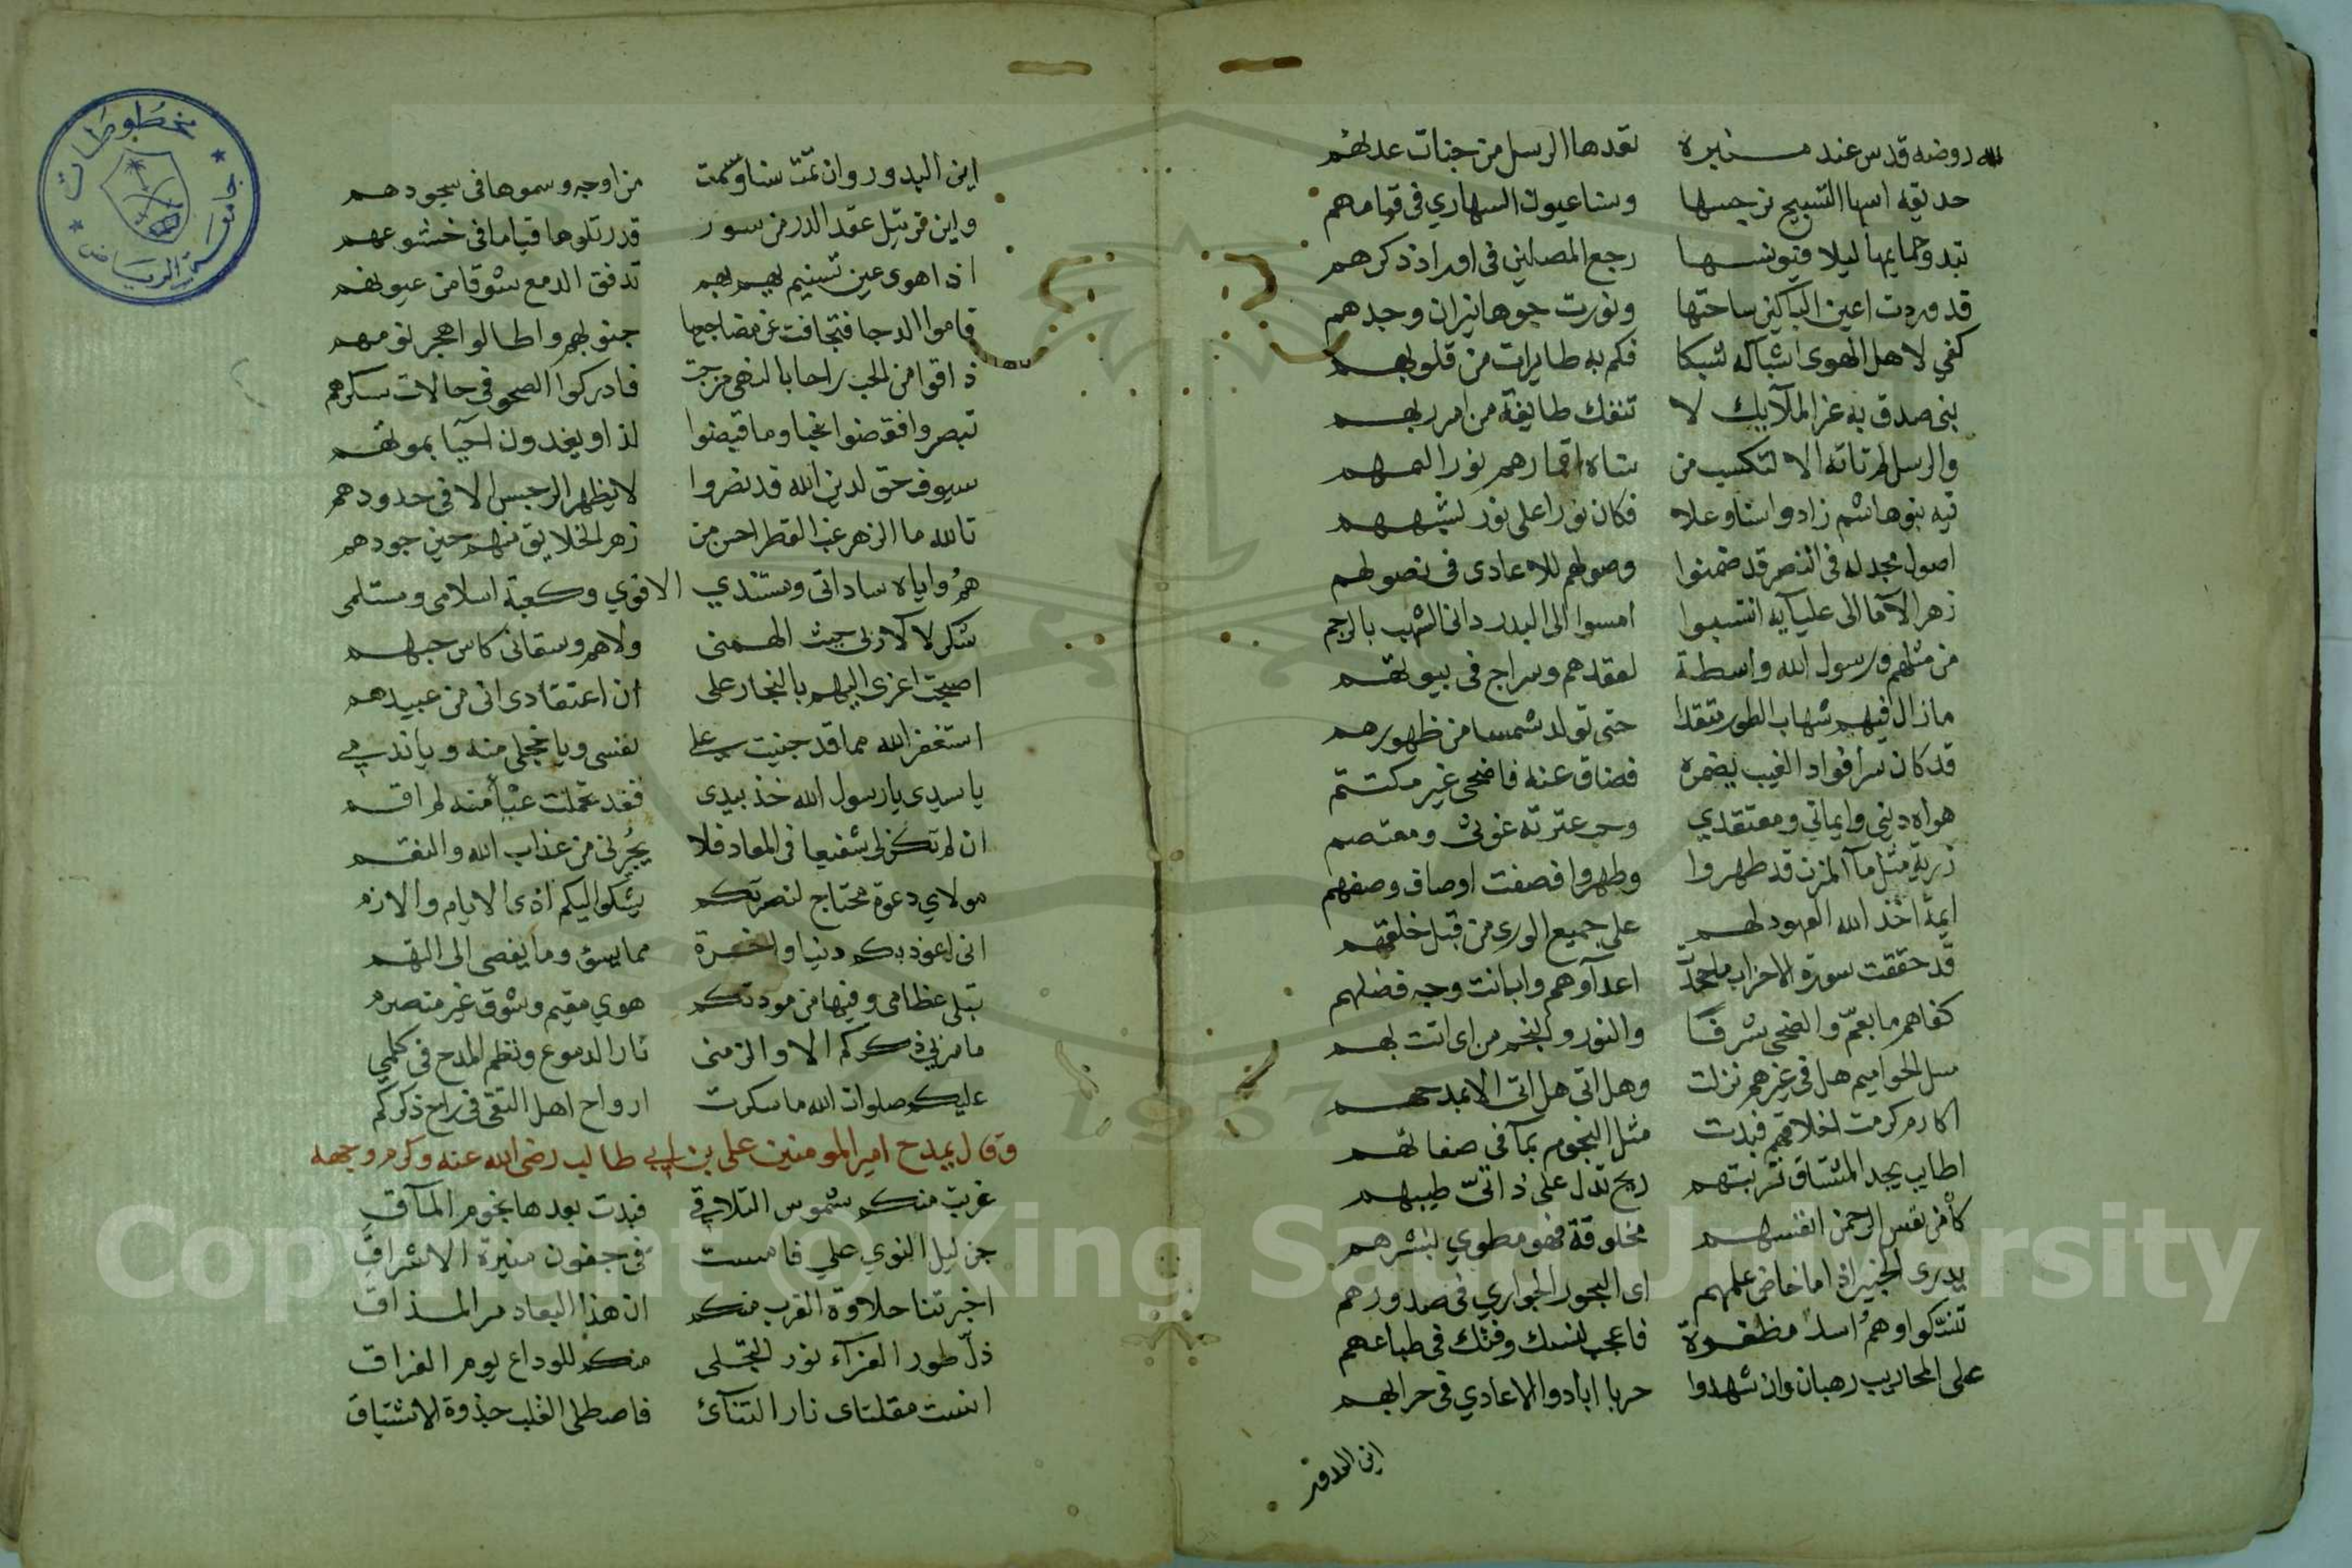 لله روضه قدس عند منبره تعدها الرسل من جنات عدنهم
حديقه اسها التسبيح نرجسها وسنا عيون السهاري في قيامهم
تبدو حمايمها ليلا فيونسها رجع المصلين في اوراد ذكرهم
قد وردت اعين الباكين ساحتها ونورت جوها نيران وجدهم
كفي لاهل الهوى اشباكه شبكا فكم به طايرات من قلوبهم
نبى صدق به غر الملآيك لا تنفك طايفة من امر ربهم
والرسل لم تاته الا لتكسب من سناه اقمارهم نور المهم
فيه بنو هاشم زادوا سنا وعلا فكان نورا على نور لشبههم
اصول مجد له في النصر قد ضمنوا وصولهم للاعادى في نصولهم
زهر الآ ما الى عليآيه انتسبوا امسوا الى البدر دانى الشهب بالرجم
من مثلهم ورسول الله واسطة لعقدهم وسراج في بيوتهم
مازال فيهم شهاب الطور متقدا حتى تولد شمسا من ظهورهم
قد كان سرا فواد الغيب يضمره فضاق عنه فاضحى غير مكتتم
هواه ديني وايماني ومعتقدي وحب عترته عونى ومعتصم
ذرية مثل مآ المزن قد طهروا وطهروا فصفت اوصاف وصفهم
ايمة اخذ الله العهود لهم على جميع الورى من قبل خلقهم
قد حققت سورة الاحزاب ما جحدت اعدآوهم وابانت وجه فضلهم
كفاهم ما بعم والضحى شرفا والنور والنجم من اى اتت بهم
سل الحواميم هل في غيرهم نزلت وهل اتى هل اتى الا بمدحهم
اكارم كرمت اخلاقهم فبدت مثل النجوم بمآ في صفاتهم
اطايب يجد المشتاق تربتهم ريح تدل على ذاتي طيبهم
كأن من نفس الرحمن انفسهم مخلوقة فهو مطوي بنشرهم
يدرى الخبير اذا ما خاض علمهم اى البحور الجواري في صدورهم
تنسكوا وهم اسد مظفرة فاعجب لنسك وفتك في طباعهم
على المحاريب رهبان وان شهدوا حربا ابادوا الاعادي في حرابهم
اين البدور
اين البدور وان تمت سنا وسمت من اوجه وسموها في سجودهم
واين ترتيل عقد الدر من سور قد رتلوها قياما في خشوعهم
اذا هوى عين تسنيم يهيم بهم تدفق الدمع شوقا من عيونهم
قاموا الدجا فتجافت عن مضاجعها جنوبهم واطالوا هجر نومهم
ذاقوا من الحب راحا بالنهى مزجت فادركوا الصحو في حالات سكرهم
تبصروا فقضوا نحبا وما قبضوا لذا ويغدون احيا بموتهم
سيوف حق لدين الله قد نصروا لا يظهر الرجس الا في حدودهم
تالله ما الزهر غب القطر احسن من زهر الخلايق منهم حين جودهم
هم واياه ساداتى ومستندي الاقوي وكعبة اسلامى ومستلمى
شكرا لالآ ربى حيث الهمنى ولاهم وسقانى كاس حبهم
اصبحت اعزى اليهم بالنجار على ان اعتقادى انى من عبيدهم
استغفر الله مما قد جنيت على نفسى ويا خجلى منه ويا ندمي
يا سيدى يا رسول الله خذ بيدى فقد تحملت عبأ منه لم اقم
ان لم تكن لى شفيعا في المعاد فلا يجيرنى من عذاب الله والنقم
مولاي دعوة محتاج لنصرتكم يشكو اليكم اذى الايام والازم
انى اعوذ بكم دنيا واخرة مما يسؤ وما يفضى الى التهم
تبلى عظامى وفيها من مودتكم هوي مقيم وشوق غير منصرم
ما مر بى ذكركم الا والزمنى نثار الدموع ونظم المدح في كلمي
عليكم صلوات الله ما سكرت ارواح اهل التقى في راح ذكركم
وقال يمدح امير المومنين على بن ابي طالب رضى الله عنه وكرم وجهه
غربت منكم شموس التلاقي فبدت بعدها نجوم المآقي
جن ليل النوي علي فامست في جفون منيرة الاشراق
اخبرتنا حلاوة القرب منكم ان هذا البعاد مر المذاق
دك طور العزآء نور التجلى منكم للوداع يوم الفراق
انست مقلتاى نار التنآئى فاصطلى القلب جذوة الاشتياق
مخطوطات
جامعة الرياض
Copyright © King Saud University
1957